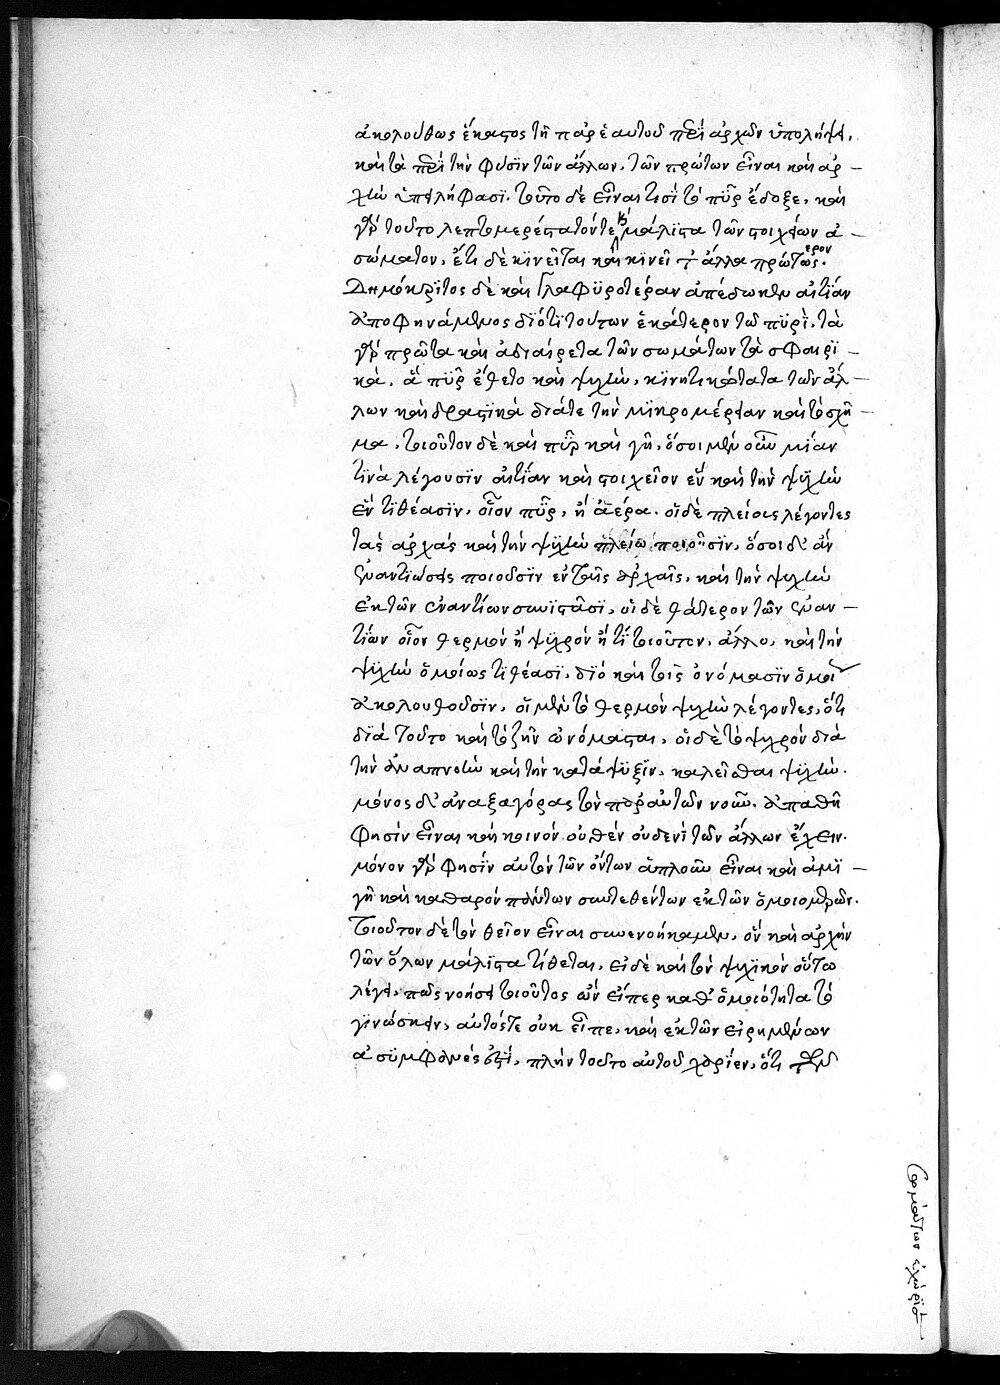 ἀκολούθως ἕκαστος τῇ παρ' ἑαυτοῦ περὶ ἀρχῶν ὑπολήψει,
καὶ τὰ περὶ τὴν φύσιν τῶν ἄλλων. τῶν πρώτων εἶναι καὶ ἀρ-
χὴν ὑπειλήφασι. τοῦτο δὲ εἶναι τισὶ τὸ πῦρ ἔδοξε, καὶ
γὰρ τοῦτο λεπτομερέστατόν τε καὶ μάλιστα τῶν στοιχείων ἀ-
σώματον, ἔτι δὲ κινεῖται καὶ κινεῖ τὰ ἄλλα πρώτως.
ερον
Δημόκριτος δὲ καὶ γλαφυροτέραν ἀπέδωκεν αἰτίαν
ἀποφηνάμενος διότι τούτων ἑκάτερον τῷ πυρὶ. τὰ
γὰρ πρῶτα καὶ ἀδιαίρετα τῶν σωμάτων τὰ σφαιρι-
κὰ, ἃ πῦρ ἔθετο καὶ ψυχὴν, κινητικώτατα τῶν ἄλ-
λων καὶ δραστικὰ διά τε τὴν μικρομέρειαν καὶ τὸ σχῆ-
μα, τοιοῦτον δὲ καὶ πῦρ καὶ γῆ, ὅσοι μὲν οὖν μίαν
τινὰ λέγουσιν αἰτίαν καὶ στοιχεῖον ἓν καὶ τὴν ψυχὴν
ἓν τιθέασιν, οἷον πῦρ, ἢ ἀέρα. οἱ δὲ πλείους λέγοντες
τὰς ἀρχὰς καὶ τὴν ψυχὴν πλείω ποιοῦσιν, ὅσοι δ' ἂν
ἐναντιώσεις ποιοῦσιν ἐν ταῖς ἀρχαῖς, καὶ τὴν ψυχὴν
ἐκ τῶν ἐναντίων συνιστᾶσι, οἱ δὲ θάτερον τῶν ἐναν-
τίων οἷον θερμὸν ἢ ψυχρὸν ἤ τι τοιοῦτον, ἄλλο, καὶ τὴν
ψυχὴν ὁμοίως τιθέασι, διὸ καὶ τοῖς ὀνόμασιν ὅμοι
ἀκολουθοῦσιν, οἱ μὲν τὸ θερμὸν ψυχὴν λέγοντες, ὅτι
διὰ τοῦτο καὶ τὸ ζῆν ὠνόμασται, οἱ δὲ τὸ ψυχρὸν διὰ
τὴν ἀναπνοὴν καὶ τὴν κατάψυξιν, καλεῖσθαι ψυχὴν.
μόνος δ' ἀναξαγόρας τὸν παρ' αὐτῶν νοῦν. ἀπαθῆ
φησὶν εἶναι καὶ κοινὸν οὐθὲν οὐδενὶ τῶν ἄλλων ἔχειν.
μόνον γὰρ φησὶν αὐτὸν τῶν ὄντων ἁπλοῦν εἶναι καὶ ἀμι-
γῆ καὶ καθαρὸν πάντων συντεθέντων ἐκ τῶν ὁμοιομερῶν.
τοιοῦτον δὲ τὸν θεῖον εἶναι συνενοήκαμεν, ὃν καὶ ἀρχὴν
τῶν ὅλων μάλιστα τίθεται, εἰ δὲ καὶ τὸν ψυχικὸν οὕτω
λέγει, πῶς νοήσει τοιοῦτος ὢν εἴπερ καθ' ὁμοιότητα τὸ
γινώσκειν, αὐτός τε οὐκ εἶπε, καὶ ἐκ τῶν εἰρημένων
ἀσύμφωνές ἐστι, πλὴν τοῦτο αὐτοῦ χαρίεν, ὅτι